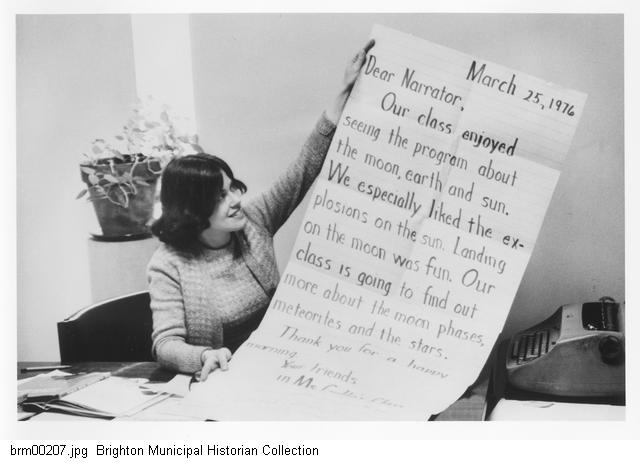 March 25, 1976
Dear Narrator,
Our class enjoyed
seeing the program about
the moon, earth and sun.
We especially liked the ex-
plosions on the sun. Landing
on the moon was fun. Our
class is going to find out
more about the moon phases,
meteorites and the stars.
Thank you for a happy
morning.
Your friends
in
brm00207.jpg Brighton Municipal Historian Collection